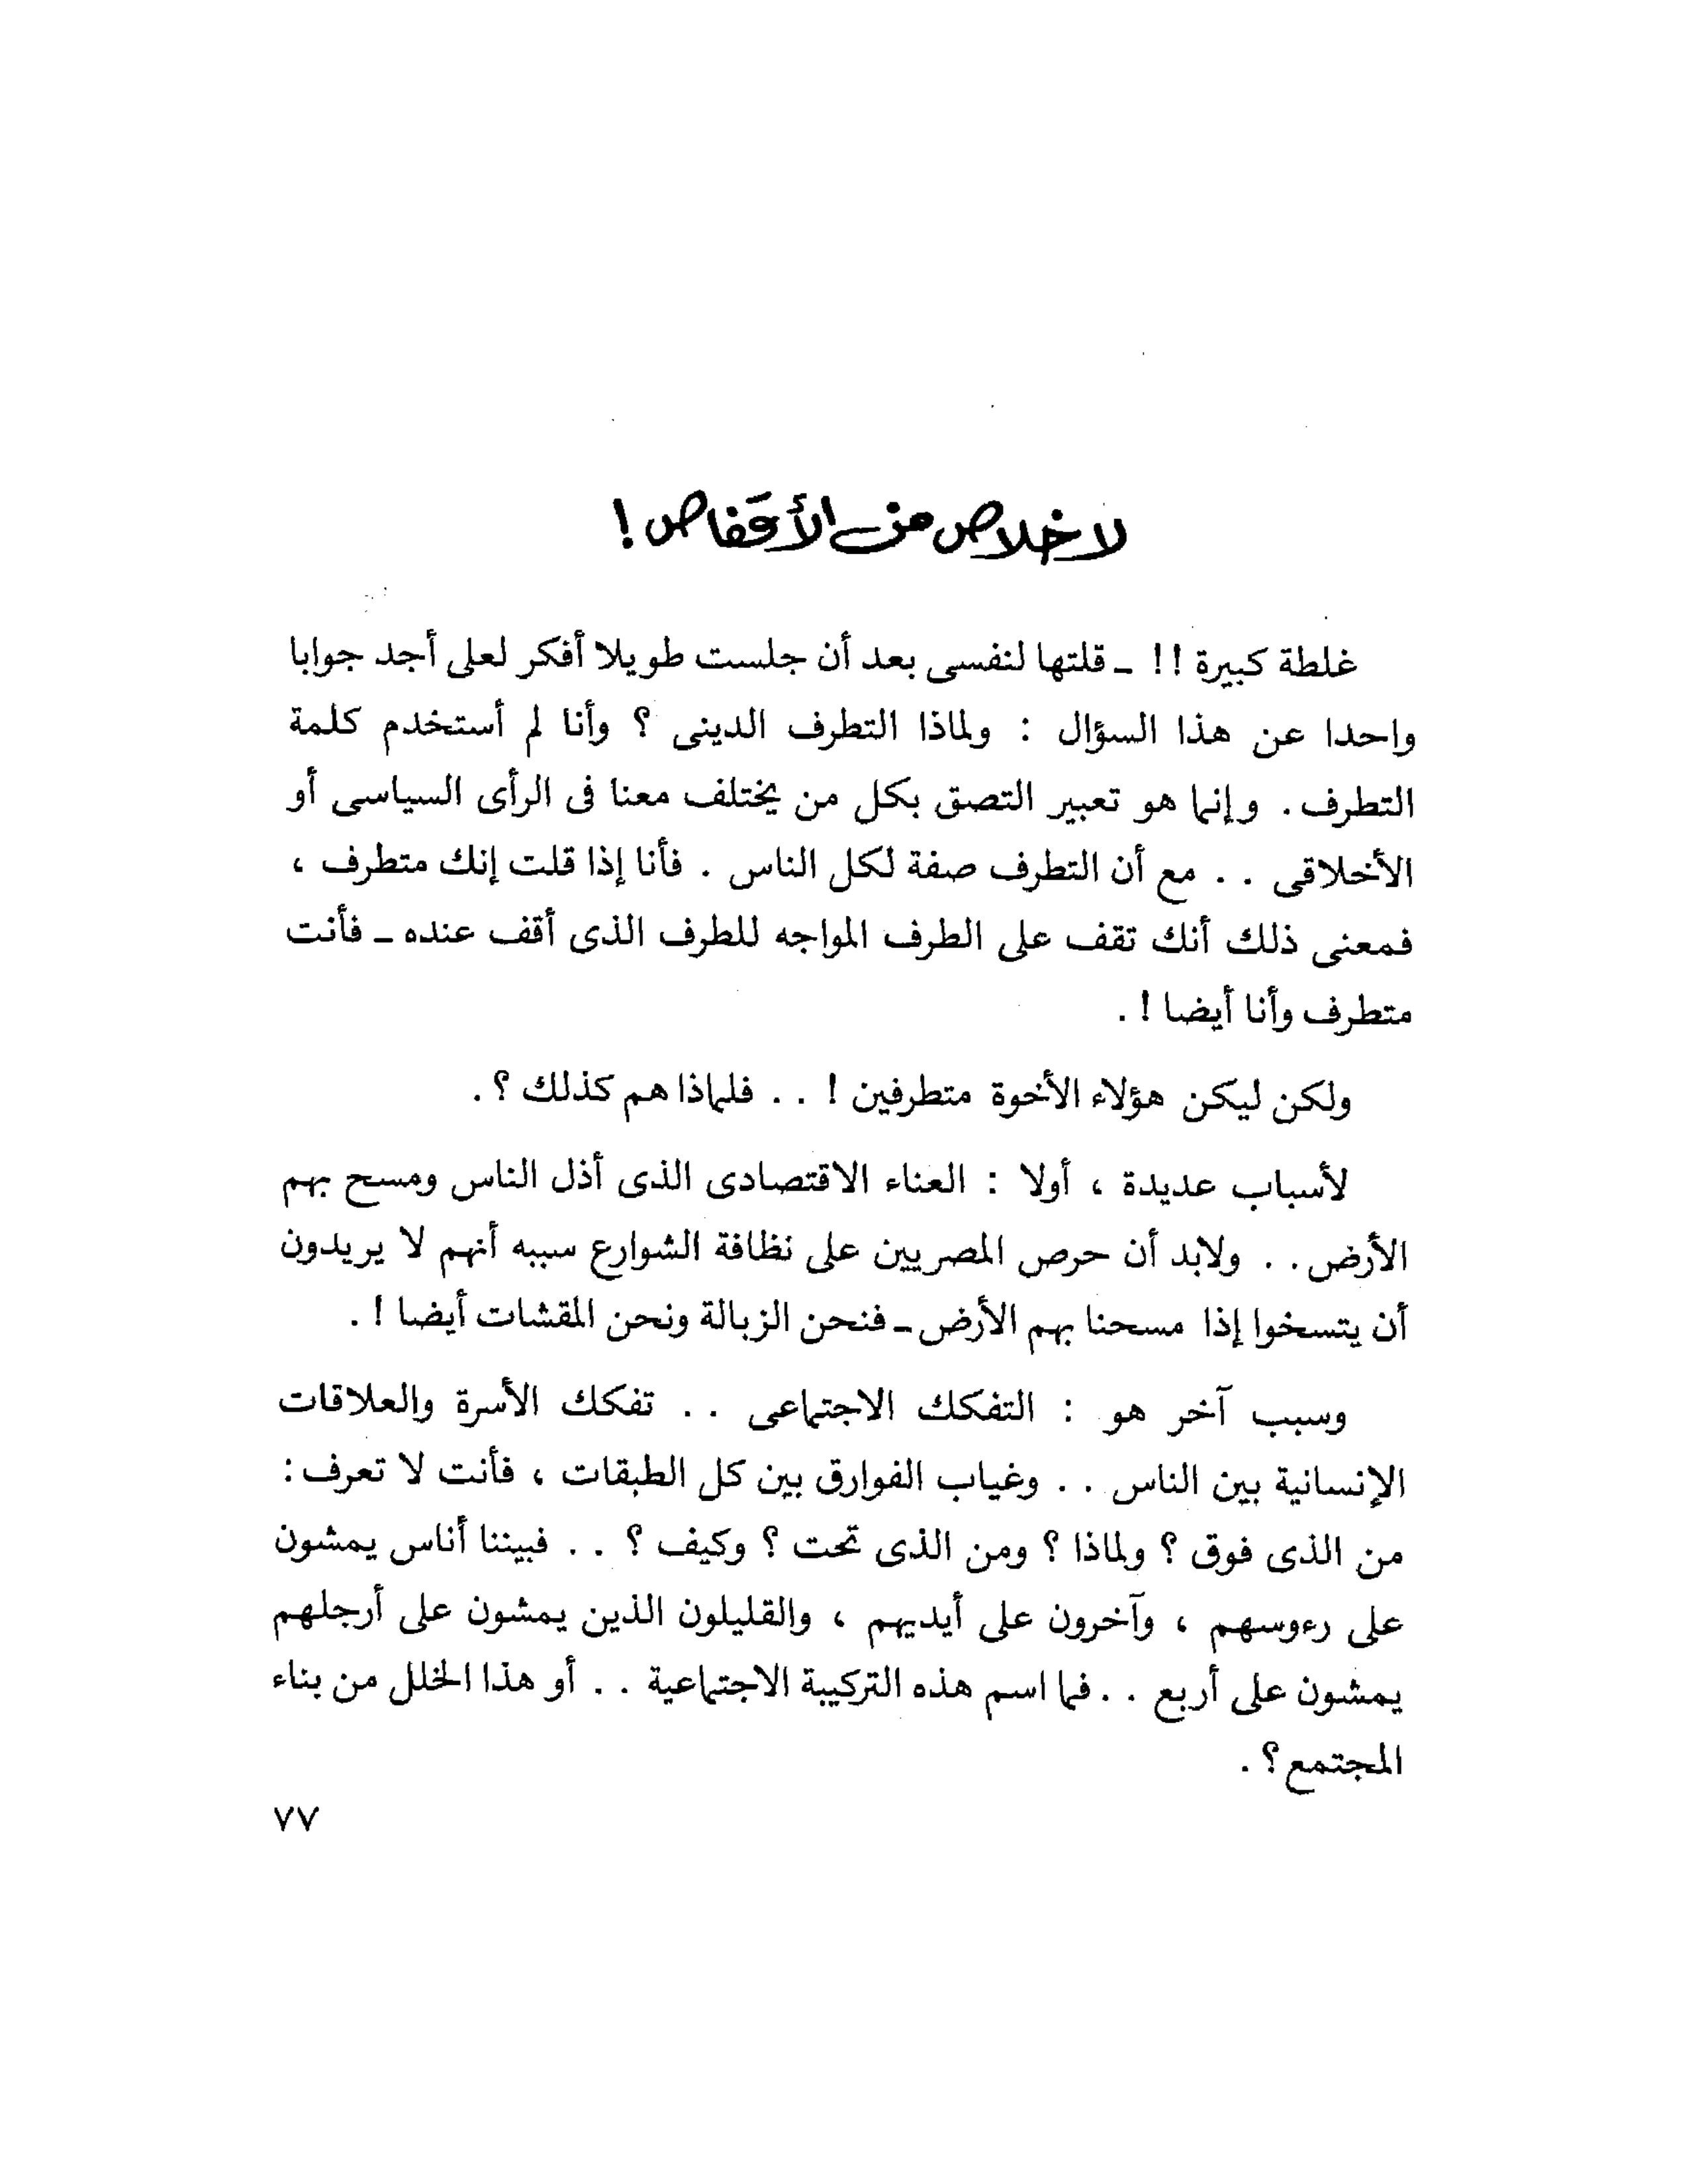 لا خلاص من الأقفاص !
غلطة كبيرة !! ـ قلتها لنفسى بعد أن جلست طويلا أفكر لعلى أجد جوابا
واحدا عن هذا السؤال : ولماذا التطرف الدينى ؟ وأنا لم أستخدم كلمة
التطرف . وإنما هو تعبير التصق بكل من يختلف معنا فى الرأى السياسى أو
الأخلاقى . . مع أن التطرف صفة لكل الناس . فأنا إذا قلت إنك متطرف ،
فمعنى ذلك أنك تقف على الطرف المواجه للطرف الذى أقف عنده ـ فأنت
متطرف وأنا أيضا ! .
ولكن ليكن هؤلاء الأخوة متطرفين ! . . فلماذا هم كذلك ؟ .
لأسباب عديدة ، أولا : العناء الاقتصادى الذى أذل الناس ومسح بهم
الأرض . . ولابد أن حرص المصريين على نظافة الشوارع سببه أنهم لا يريدون
أن يتسخوا إذا مسحنا بهم الأرض ـ فنحن الزبالة ونحن المقشات أيضا ! .
وسبب آخر هو : التفكك الاجتماعى . . تفكك الأسرة والعلاقات
الإنسانية بين الناس . . وغياب الفوارق بين كل الطبقات ، فأنت لا تعرف :
من الذى فوق ؟ ولماذا ؟ ومن الذى تحت ؟ وكيف ؟ . . فبيننا أناس يمشون
على رءوسهم ، وآخرون على أيديهم ، والقليلون الذين يمشون على أرجلهم
يمشون على أربع . . فما اسم هذه التركيبة الاجتماعية . . أو هذا الخلل من بناء
المجتمع ؟ .
٧٧